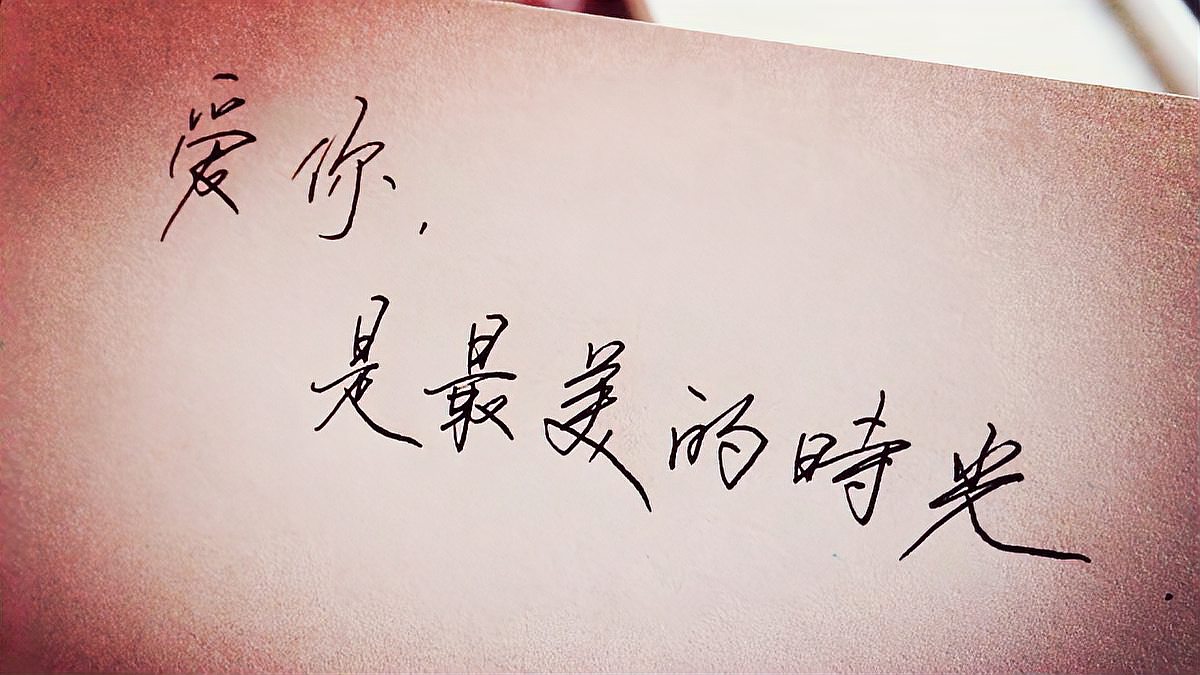 爱你,
是最美的時光.